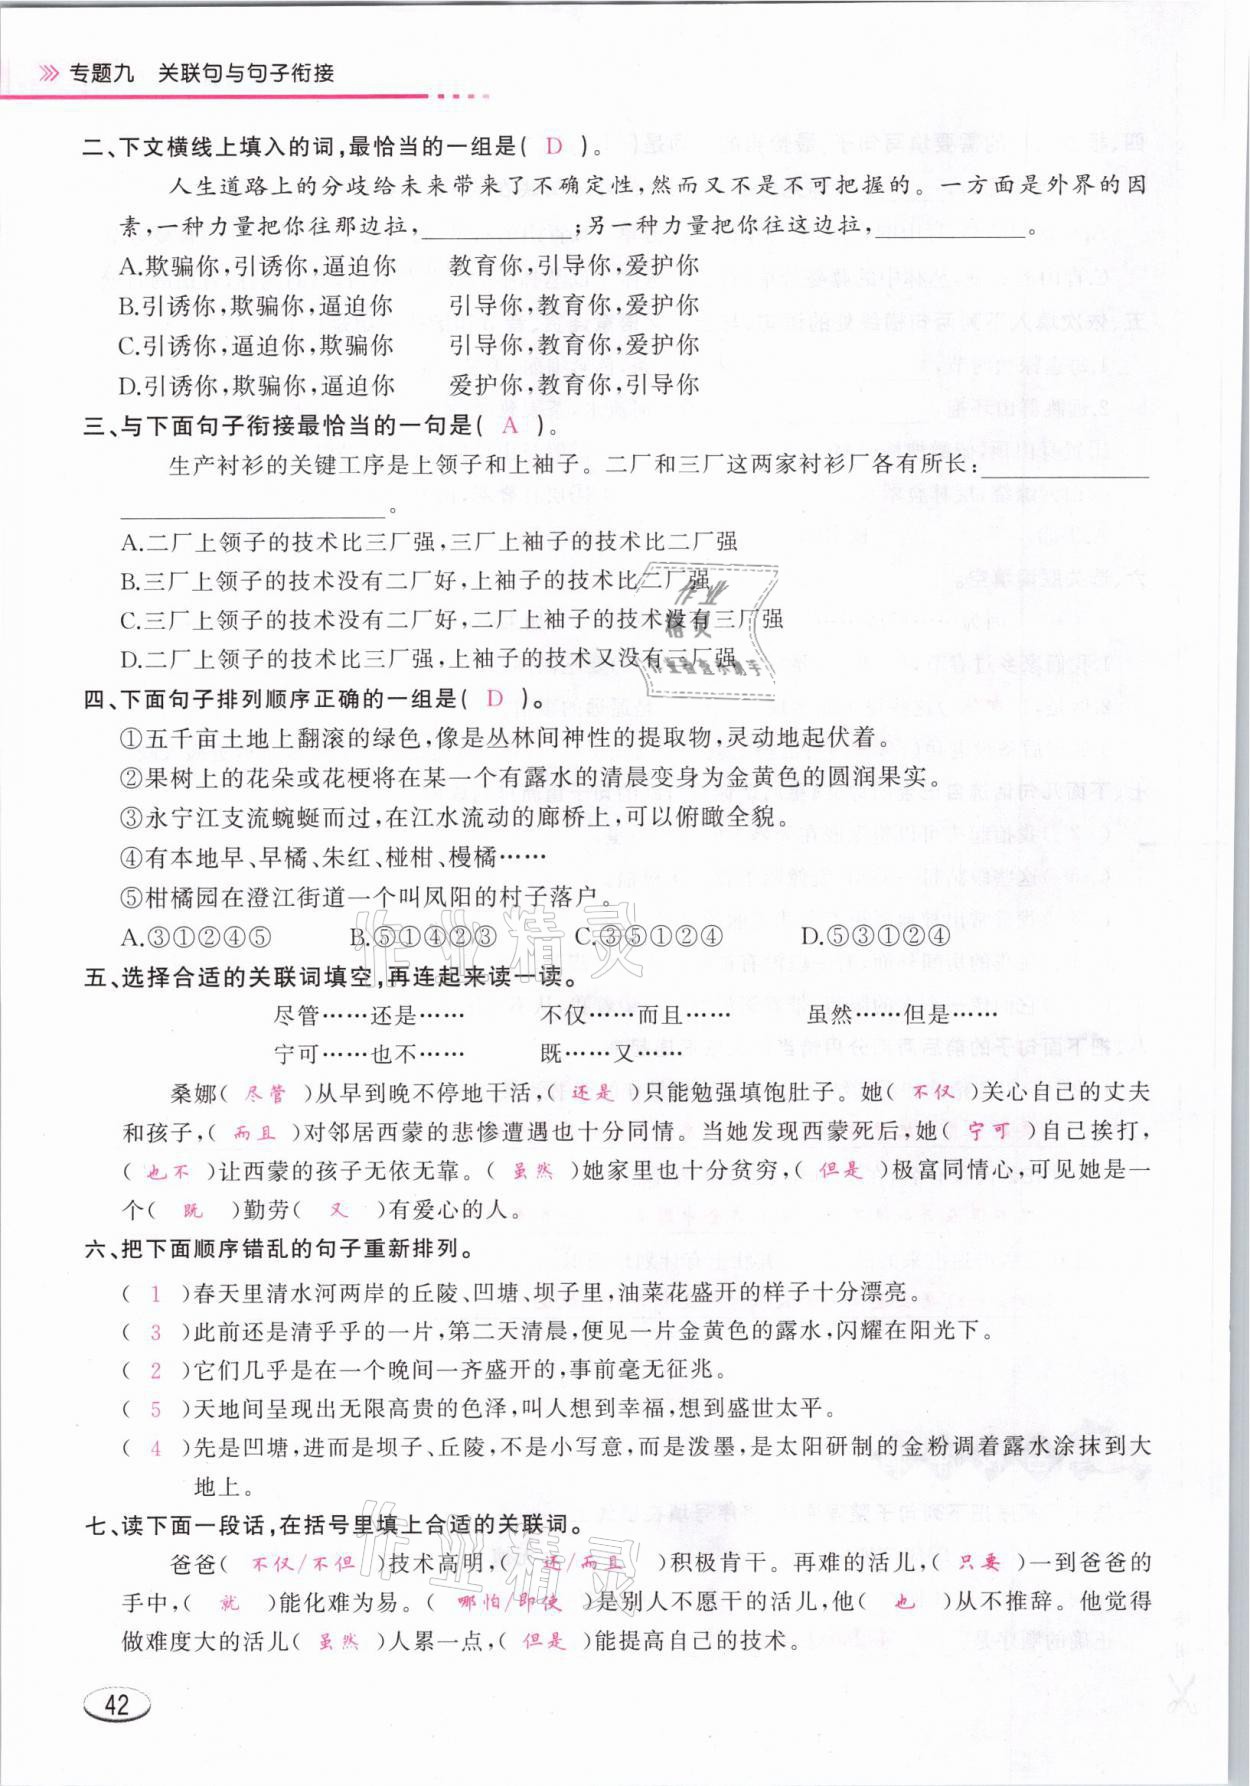 专题九 关联句与句子衔接
二、下文横线上填入的词,最恰当的一组是( D )。
人生道路上的分歧给未来带来了不确定性,然而又不是不可把握的。一方面是外界的因
素,一种力量把你往那边拉,____________;另一种力量把你往这边拉,____________。
A.欺骗你,引诱你,逼迫你 教育你,引导你,爱护你
B.引诱你,欺骗你,逼迫你 引导你,教育你,爱护你
C.引诱你,逼迫你,欺骗你 引导你,教育你,爱护你
D.引诱你,欺骗你,逼迫你 爱护你,教育你,引导你
三、与下面句子衔接最恰当的一句是( A )。
生产衬衫的关键工序是上领子和上袖子。二厂和三厂这两家衬衫厂各有所长:____________
____________________。
A.二厂上领子的技术比三厂强,三厂上袖子的技术比二厂强
B.三厂上领子的技术没有二厂好,上袖子的技术比二厂强
C.三厂上领子的技术没有二厂好,二厂上袖子的技术没有三厂强
D.二厂上领子的技术比三厂强,上袖子的技术又没有三厂强
作业
精灵
四、下面句子排列顺序正确的一组是( D )。
①五千亩土地上翻滚的绿色,像是丛林间神性的提取物,灵动地起伏着。
②果树上的花朵或花梗将在某一个有露水的清晨变身为金黄色的圆润果实。
③永宁江支流蜿蜒而过,在江水流动的廊桥上,可以俯瞰全貌。
④有本地早、早橘、朱红、椪柑、槾橘……
⑤柑橘园在澄江街道一个叫凤阳的村子落户。
A.③①②④⑤ B.⑤①④②③ C.③⑤①②④ D.⑤③①②④
作业精灵
五、选择合适的关联词填空,再连起来读一读。
尽管……还是…… 不仅……而且…… 虽然……但是……
宁可……也不…… 既……又……
桑娜( 尽管 )从早到晚不停地干活,( 还是 )只能勉强填饱肚子。她( 不仅 )关心自己的丈夫
和孩子,( 而且 )对邻居西蒙的悲惨遭遇也十分同情。当她发现西蒙死后,她( 宁可 )自己挨打,
( 也不 )让西蒙的孩子无依无靠。( 虽然 )她家里也十分贫穷,( 但是 )极富同情心,可见她是一
个( 既 )勤劳( 又 )有爱心的人。
六、把下面顺序错乱的句子重新排列。
( 1 )春天里清水河两岸的丘陵、凹塘、坝子里,油菜花盛开的样子十分漂亮。
( 3 )此前还是清乎乎的一片,第二天清晨,便见一片金黄色的露水,闪耀在阳光下。
( 2 )它们几乎是在一个晚间一齐盛开的,事前毫无征兆。
( 5 )天地间呈现出无限高贵的色泽,叫人想到幸福,想到盛世太平。
( 4 )先是凹塘,进而是坝子、丘陵,不是小写意,而是泼墨,是太阳研制的金粉调着露水涂抹到大
地上。
七、读下面一段话,在括号里填上合适的关联词。
作业精灵
爸爸( 不仅/不但 )技术高明,( 还/而且 )积极肯干。再难的活儿,( 只要 )一到爸爸的
手中,( 就 )能化难为易。( 哪怕/即使 )是别人不愿干的活儿,他( 也 )从不推辞。他觉得
做难度大的活儿( 虽然 )人累一点,( 但是 )能提高自己的技术。
42